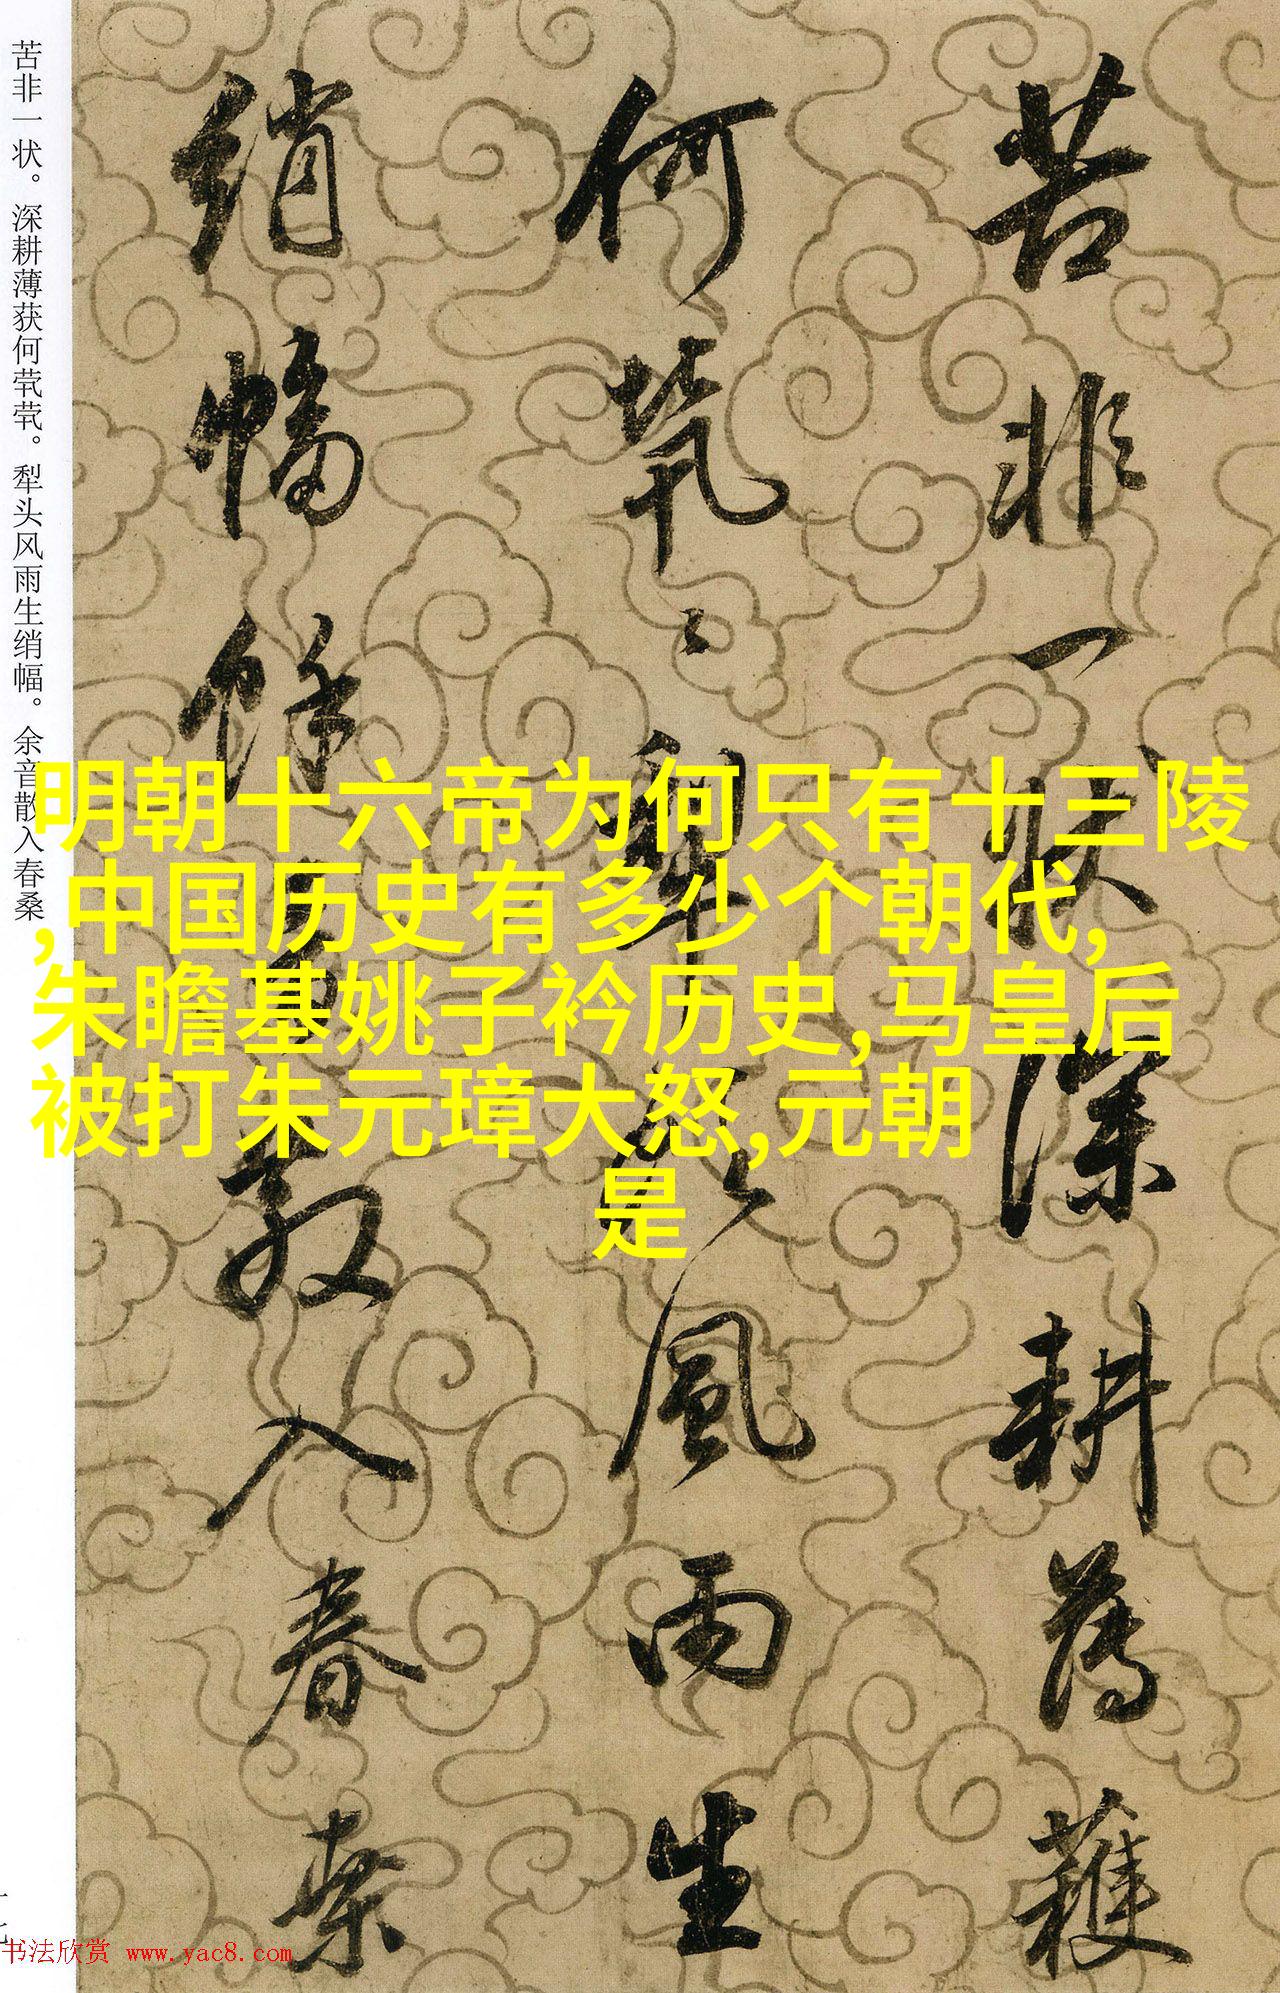 苦非一状。深耕薄获何茕茕。犁头风雨生绡幅。余音散入春桑
苦非一状深耕薄穫
何茕〻犁头風雨生
绡幅馀音散入春桑
明朝十六帝为何只有十三陵
,中国历史有多少个朝代,
朱瞻基姚子衿历史,马皇后
被打朱元璋大怒,元朝
是
书法欣赏 www.yac8.com